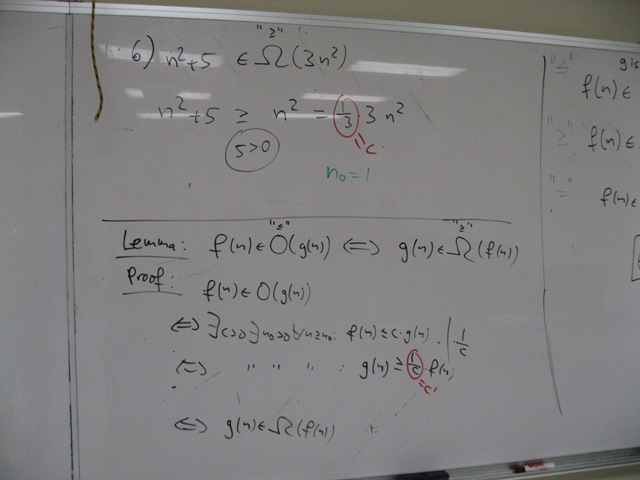 "≥"
6) n²+5 ∈ Ω(3n²)
n²+5 ≥ n² = 1/3 3n²
5>0
= c
n₀=1
"≤" "≥"
Lemma: f(n)∈O(g(n)) ⇔ g(n)∈Ω(f(n))
Proof: f(n)∈O(g(n))
⇔ ∃c>0∃n₀>0∀n≥n₀: f(n)≤c·g(n) · | 1/c
⇔ " " " " g(n) ≥ 1/c f(n)
=c'
⇔ g(n)∈Ω(f(n))
g is
"≤" f(n) ∈
"≥" f(n) ∈
"=" f(n) ∈